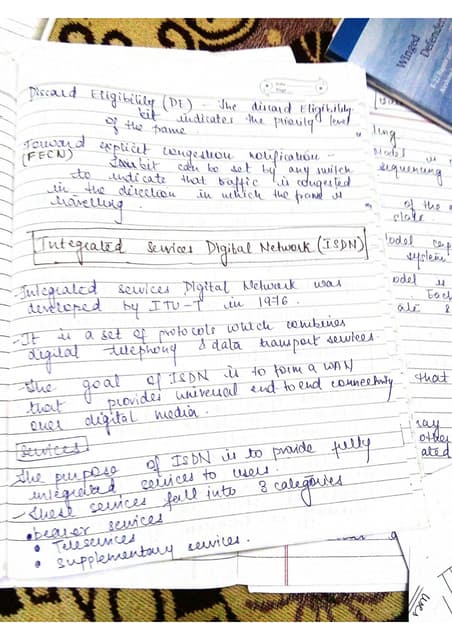 Discard Eligibility (DE) - The discard Eligibility
bit indicates the priority level
of the frame.
Forward explicit congestion notification -
(FECN)
bit can be set by any switch
to indicate that traffic is congested
in the direction in which the frame is
travelling
Integrated Services Digital Network (ISDN)
- Integrated services Digital Network was
developed by ITU-T in 1976.
- It is a set of protocols which combines
digital telephony & data transport services.
- The goal of ISDN is to form a WAN
that provides universal end to end connectivity
over digital media.
Services
The purpose of ISDN is to provide fully
integrated services to users.
- These services fall into 3 categories
• bearer services
• Teleservices
• Supplementary services.
Winged
Defender
ling
model is
sequencing
of the
model
system
odel is
Each
that
other
ated